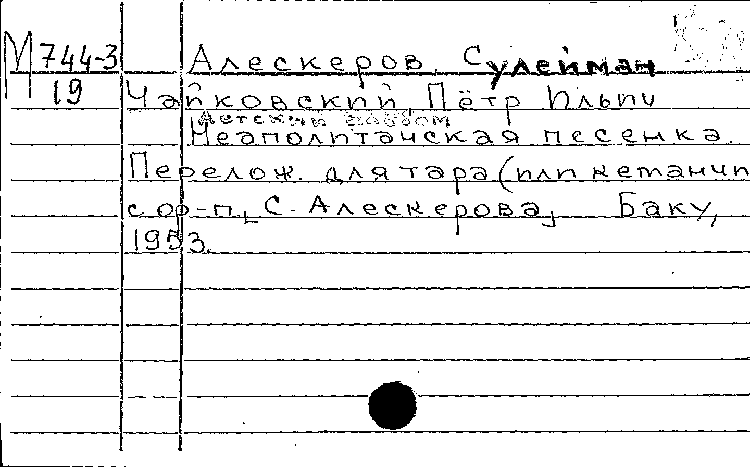 М 744-3 Алескеров, Сулейман
19 Чайковский, Пётр Ильич
Детский альбом
Неаполитанская песенка.
Перелож. для тара (или кеманчи
с ф-п. С. Алескерова, Баку,
1953.